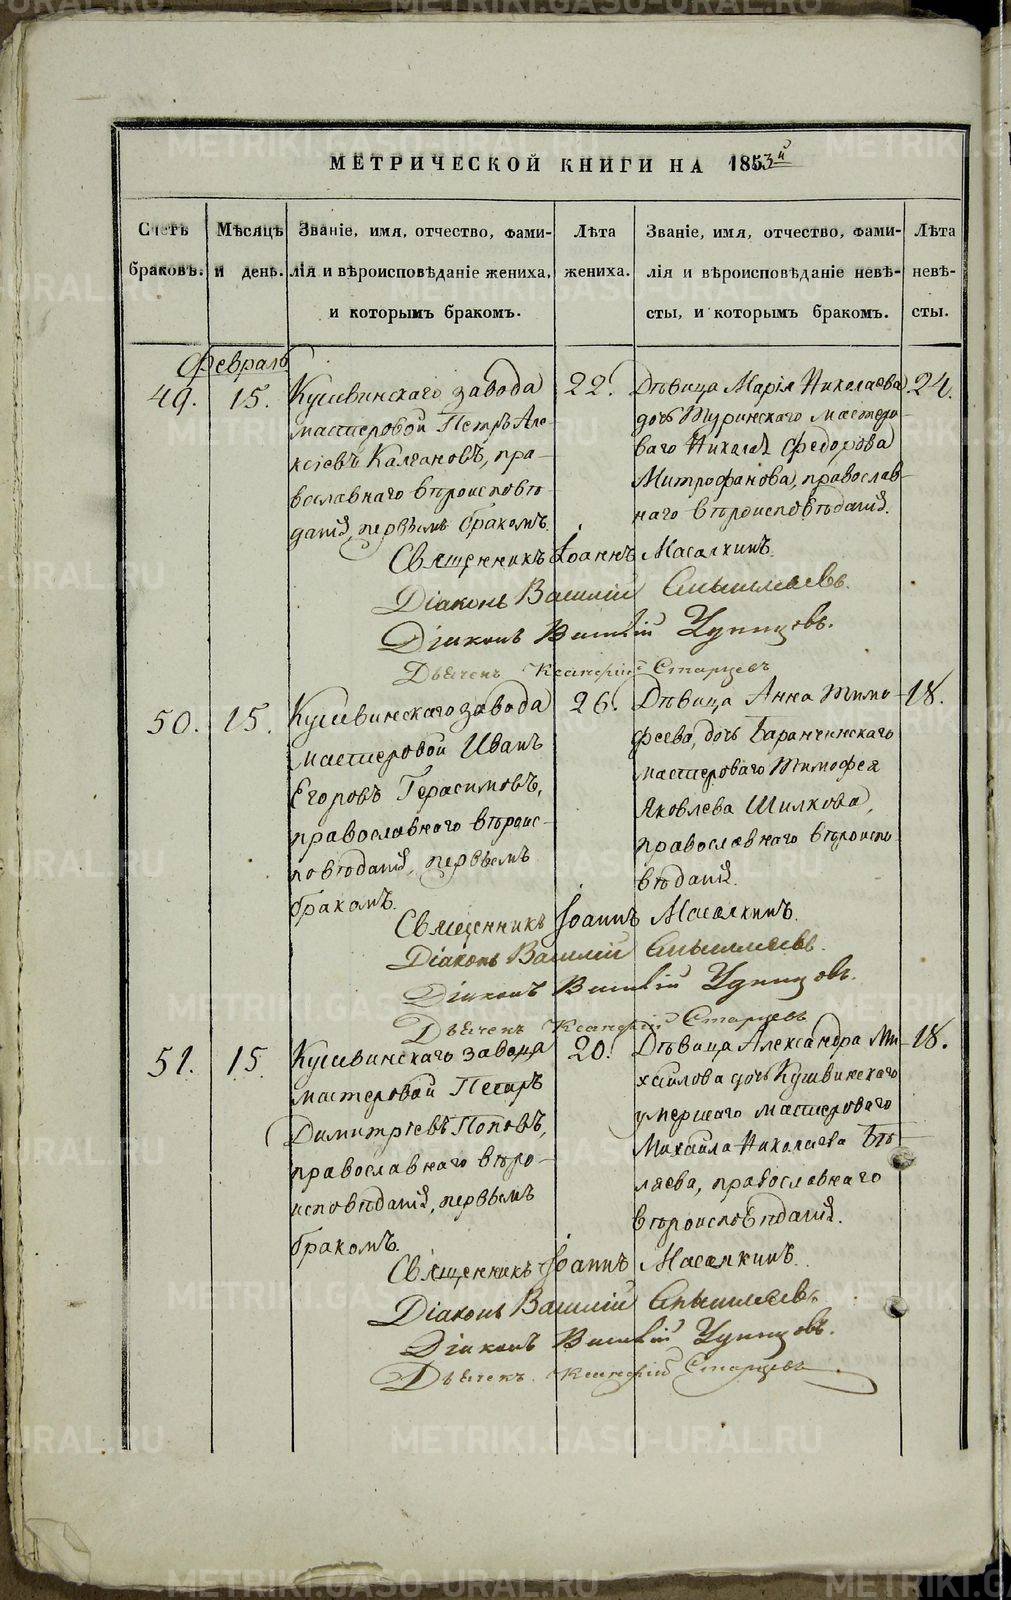 МЕТРИЧЕСКОЙ КНИГИ НА 1853й
Счетъ браковъ.
Мѣсяцъ и день.
Званіе, имя, отчество, фами-
лія и вѣроисповѣданіе жениха,
и которымъ бракомъ.
Лѣта
жениха.
Званіе, имя, отчество, фами-
лія и вѣроисповѣданіе невѣ-
сты, и которымъ бракомъ.
Лѣта
невѣ-
сты.
Февраль
49.
15.
Кушвинскаго завода
мастеровой Петръ Але-
ксіевъ Калгановъ, пра-
вославнаго вѣроисповѣ
данія, первымъ бракомъ.
22.
Дѣвица Марія Николаева
дочь Туринскаго мастеро-
ваго Николая Федорова
Митрофанова, православ-
наго вѣроисповѣданія.
24.
Священникъ Іоаннъ Масалкинъ.
Діаконъ Василій
Діаконъ Василій Удинцовъ.
Дьячекъ Старцевъ
50.
15.
Кушвинскаго завода
мастеровой Иванъ
Егоровъ Герасимовъ,
православнаго вѣроис-
повѣданія, первымъ
бракомъ.
26.
Дѣвица Анна Тимо-
феева, дочь Баранчинскаго
мастероваго Тимофея
Яковлева Шилкова,
православнаго вѣроиспо
вѣданія.
18.
Священникъ Іоаннъ Масалкинъ.
Діаконъ Василій
Діаконъ Василій Удинцовъ.
Дьячекъ Старцевъ
51.
15.
Кушвинскаго завода
мастеровой Петръ
Димитріевъ Поповъ,
православнаго вѣро-
исповѣданія, первымъ
бракомъ.
20.
Дѣвица Александра Ми-
хайлова дочь Кушвинскаго
умершаго мастероваго
Михаила Николаева Бѣ-
ляева, православнаго
вѣроисповѣданія.
18.
Священникъ Іоаннъ Масалкинъ.
Діаконъ Василій
Діаконъ Василій Удинцовъ.
Дьячекъ Старцевъ
METRIKI.GASO-URAL.RU